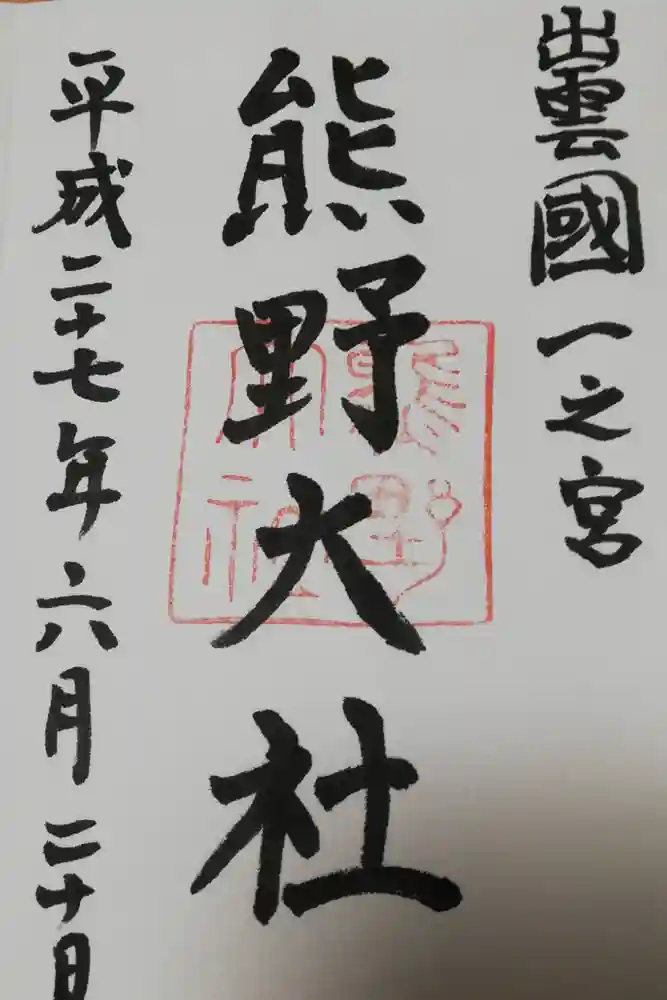 出雲國一之宮
熊野大社
熊野
大社
平成二十七年六月二十日